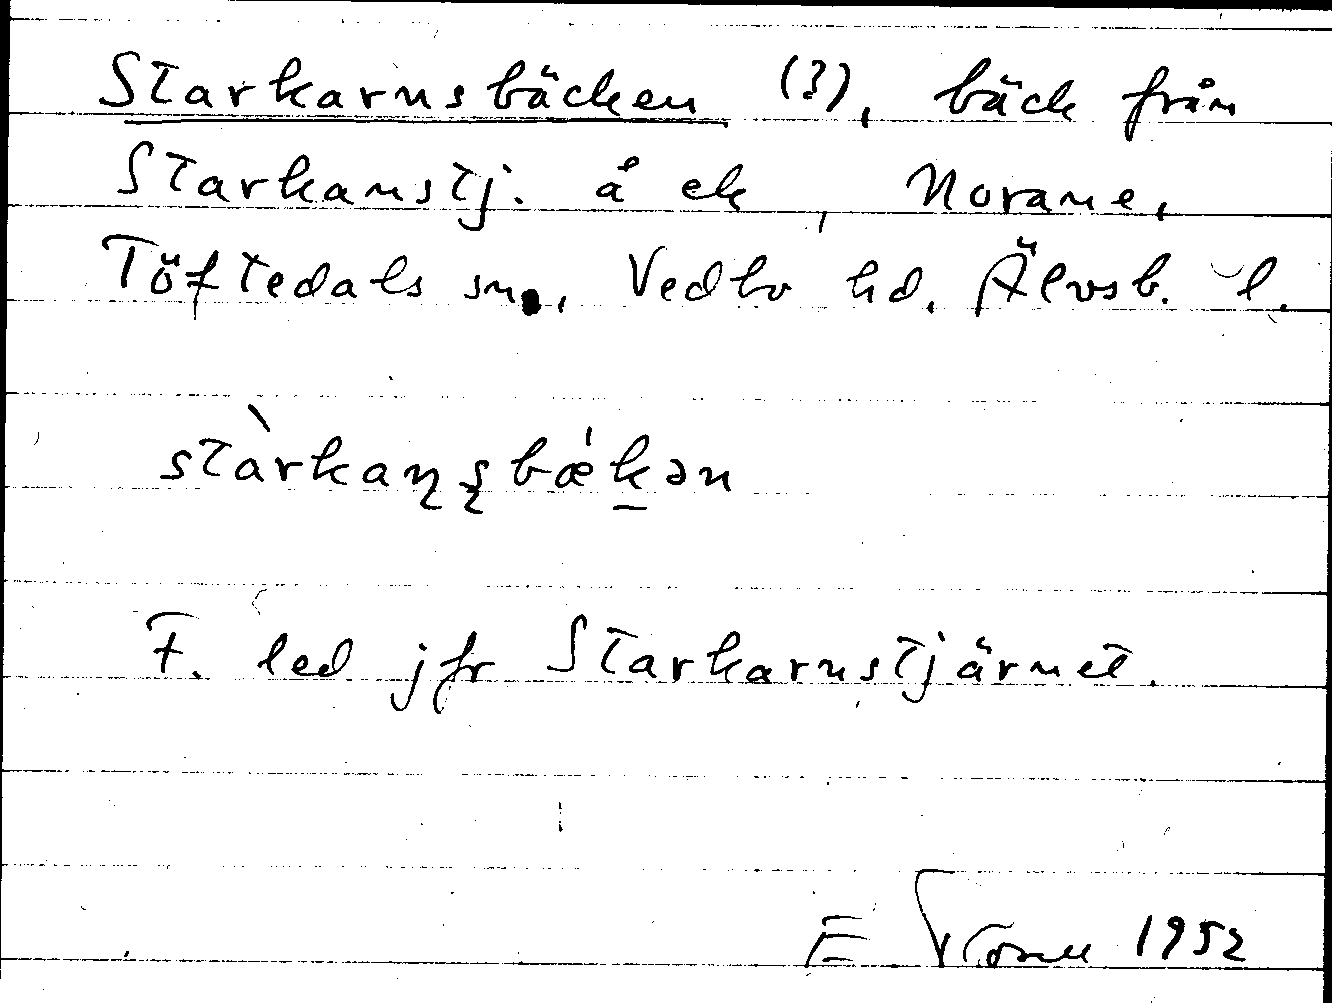 Starkarnsbäcken (?), bäck från
Starkanstj. å ek, Norane,
Töftedals sn., Vedbo hd. Älvsb. l.
stàrkaɳʂbǽk̲ən
F. led jfr Starkarnstjärnet.
E 1952